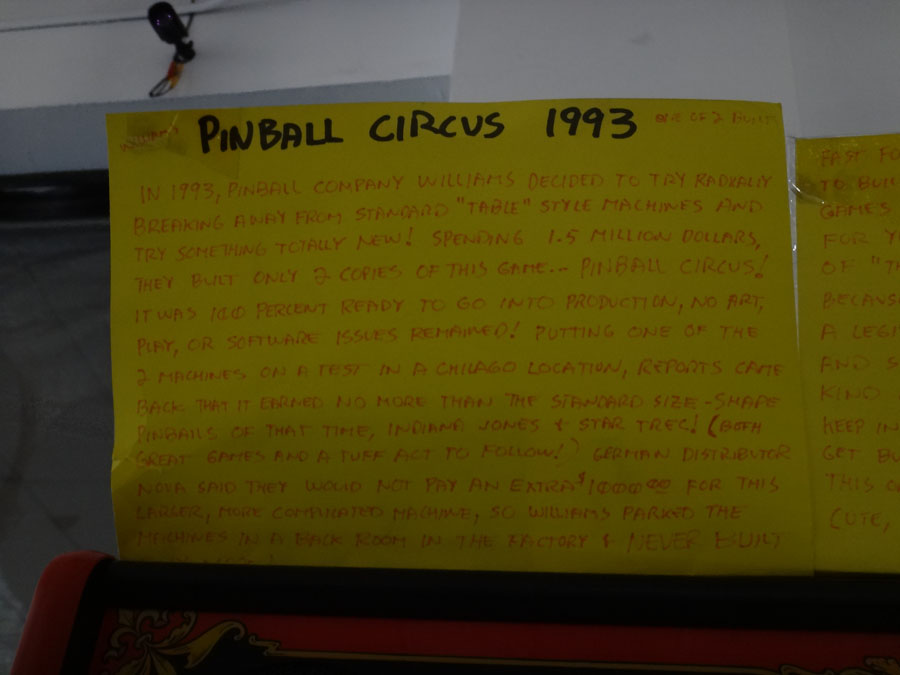 WILLIAMS PINBALL CIRCUS 1993 ONE OF 2 BUILT
IN 1993, PINBALL COMPANY WILLIAMS DECIDED TO TRY RADICALLY
BREAKING AWAY FROM STANDARD "TABLE" STYLE MACHINES AND
TRY SOMETHING TOTALLY NEW! SPENDING 1.5 MILLION DOLLARS,
THEY BUILT ONLY 2 COPIES OF THIS GAME... PINBALL CIRCUS!
IT WAS 100 PERCENT READY TO GO INTO PRODUCTION, NO ART,
PLAY, OR SOFTWARE ISSUES REMAINED! PUTTING ONE OF THE
2 MACHINES ON A TEST IN A CHICAGO LOCATION, REPORTS CAME
BACK THAT IT EARNED NO MORE THAN THE STANDARD SIZE-SHAPE
PINBALLS OF THAT TIME, INDIANA JONES & STAR TREC! (BOTH
GREAT GAMES AND A TUFF ACT TO FOLLOW!) GERMAN DISTRIBUTOR
NOVA SAID THEY WOULD NOT PAY AN EXTRA $1000.00 FOR THIS
LARGER, MORE COMPLICATED MACHINE, SO WILLIAMS PARKED THE
MACHINES IN A BACK ROOM IN THE FACTORY & NEVER BUILT
FAST
TO
GAMES
FOR
OF
A
AND
KEEP IN
GET
THIS